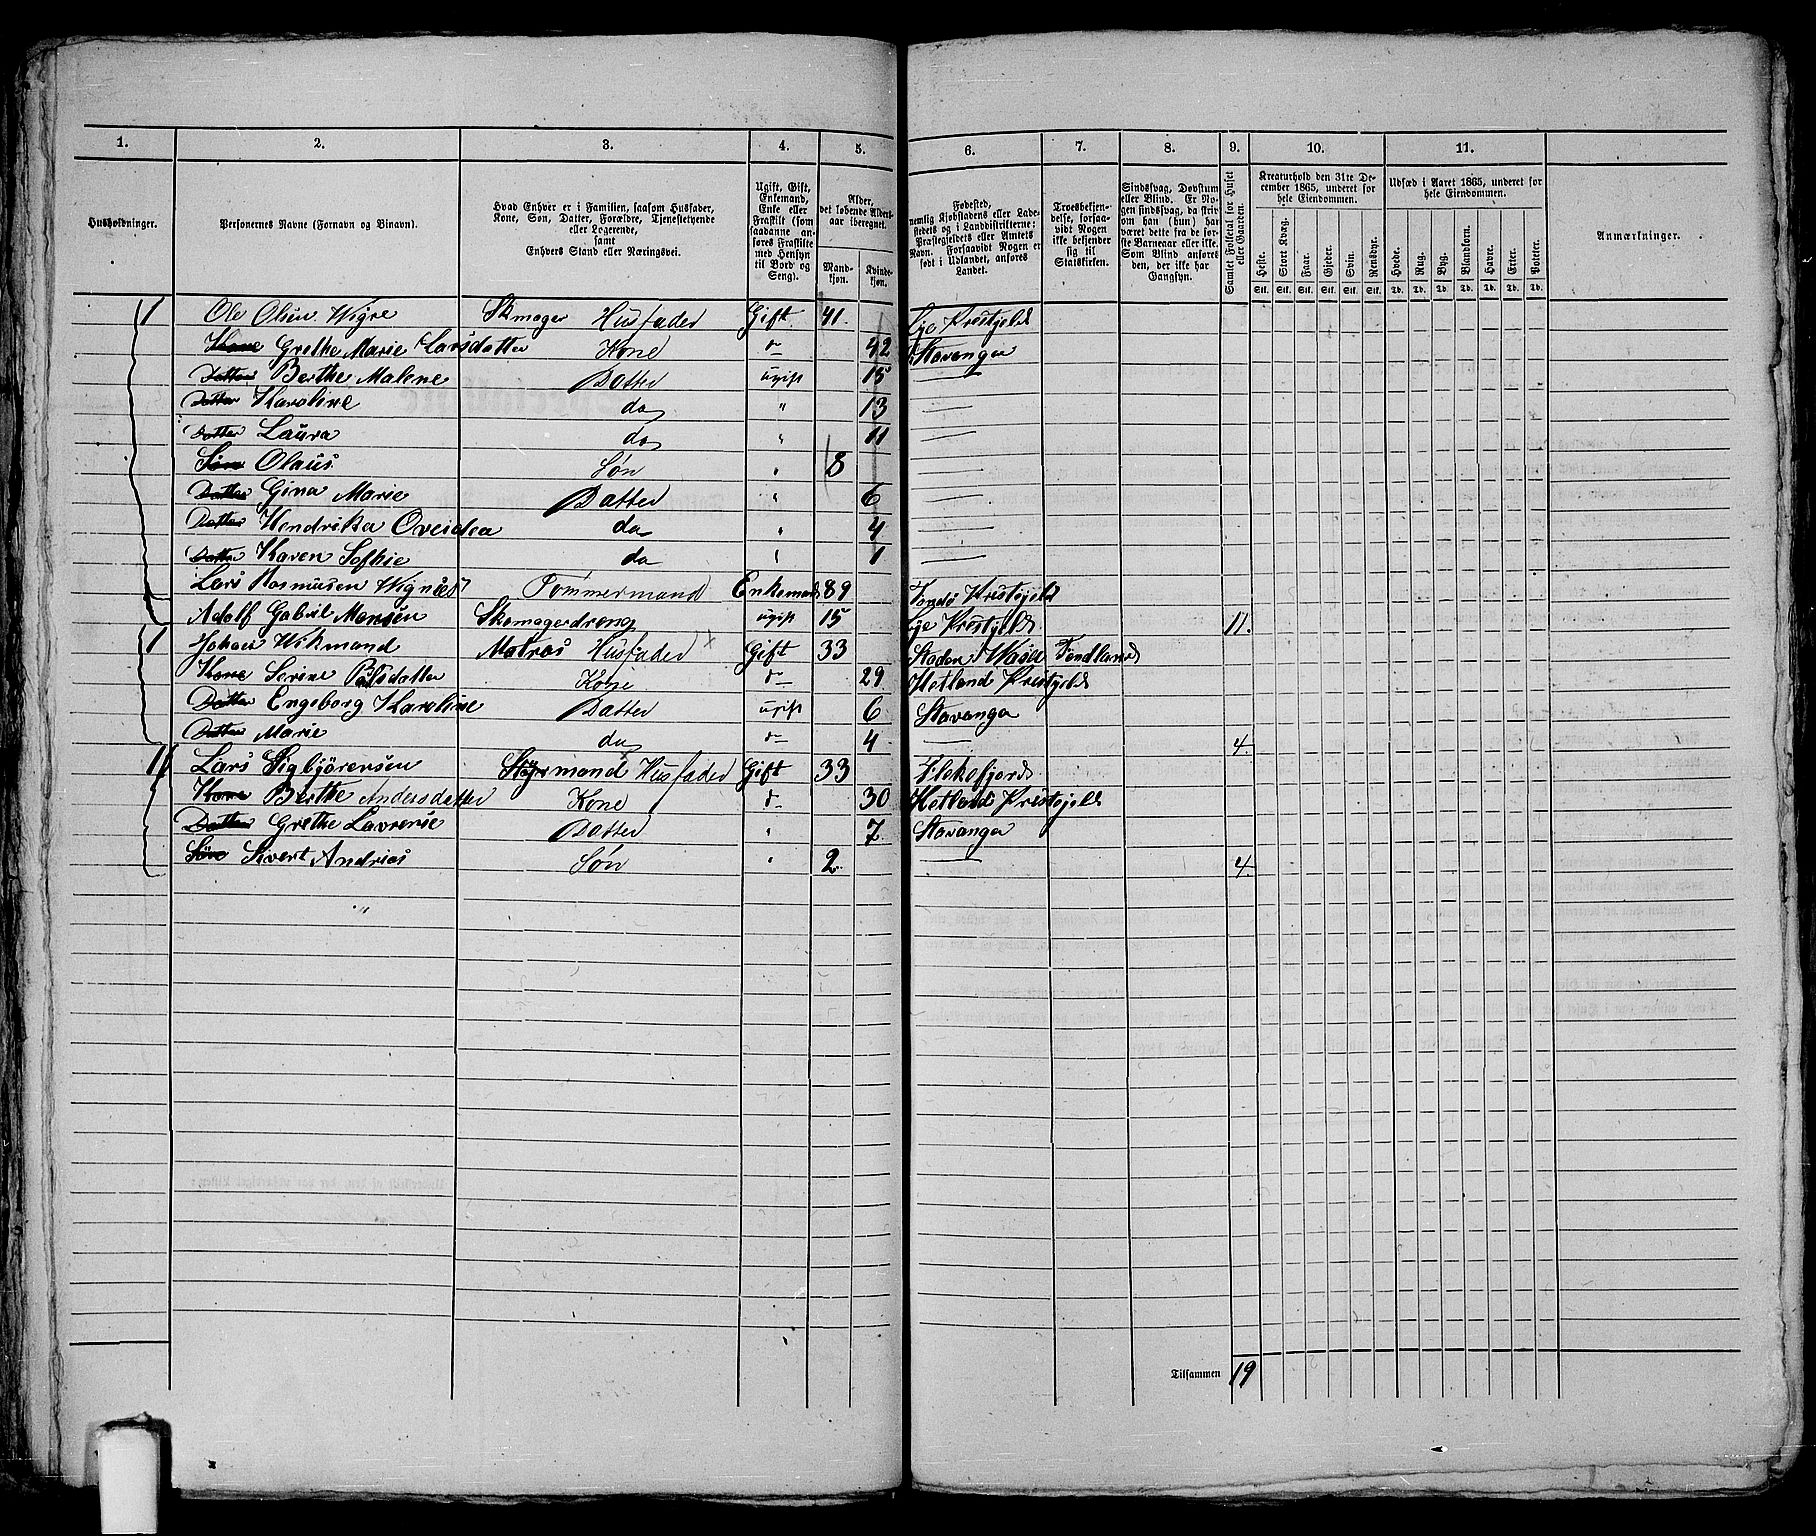 1. 2. 3. 4. 5. 6. 7. 8. 9. 10. 11.
Husholdninger.
Personernes Navne (Fornavn og Binavn).
Hvad Enhver er i Familien, saasom Husfader,
Kone, Søn, Datter, Forældre, Tjenestetyende
eller Logerende,
samt
Enhvers Stand eller Næringsvei.
Ugift, Gift,
Enkemand,
Enke eller
Fraskilt (som
saadanne an-
føres Fraskilte
med Hensyn
til Bord og
Seng).
Alder,
det løbende Alders-
aar iberegnet.
Mand-
kjøn.
Kvinde-
kjøn.
Fødested,
nemlig Kjøbstadens eller Lade-
stedets og i Landdistrikterne:
Præstegjeldets eller Amtets
Navn. Forsaavidt Nogen er
født i Udlandet, anføres
Landet.
Troesbekjen-
delse, forsaa-
vidt Nogen
ikke bekjender
sig til
Statskirken.
Sindssvag, Døvstum
eller Blind. Er No-
gen sindssvag, da skriv
om han (hun) har
været dette fra de før-
ste Barneaar eller ikke.
Som Blind anføres
den, der ikke har
Gangsyn.
Samlet Folketal for Huset
eller Gaarden.
Kreaturhold den 31te De-
cember 1865, underet for
hele Eiendommen.
Heste. Stort Kvæg. Faar. Gjeder. Svin. Rensdyr.
Stk. Stk. Stk. Stk. Stk. Stk.
Udsæd i Aaret 1865, underet for
hele Eiendommen.
Hvede. Rug. Byg. Blandkorn. Havre. Erter. Poteter.
Td. Td. Td. Td. Td. Td. Td.
Anmærkninger.
1 Ole Olsen Wigre Skmager Husfader Gift 41. Lye Prestjeld
Kone Grethe Marie Larsdatter Kone do 42 Stavanger
Datter Berthe Malene Datter ugift 15 —
Datter Karoline do " 13 —
Datter Laura do " 11 —
Søn Olaus Søn " 8 —
Datter Gina Marie Datter " 6 —
Datter Hendrika Oveidea do " 4 —
Datter Karen Sofhie do " 1 —
Lars Rasmusen Wignæs Tømmermand Enkemand 89 Prestgjeld
Adolf Gabriel Monsen Skomagerdreng ugift 15 Lye Prestjeld 11.
1 Johan Wikmand Matros Husfader x Gift 33 Staden Wasa Findland
Kone Serine Pålsdatter Kone do 29 Hetland Prestjeld
Datter Engeborg Karoline Datter ugift 6 Stavanger
Datter Marie do do 4 — 4.
1 Lars Sigbjörensen Styrmand Husfader Gift 33 Flekefjord
Kone Berthe Andersdatter Kone do 30 Hetland Prestgjeld
Datter Grethe Lavrense Datter " 7 Stavanger
Søn Sivert Andrias Søn " 2 — 4.
"
Tilsammen 19